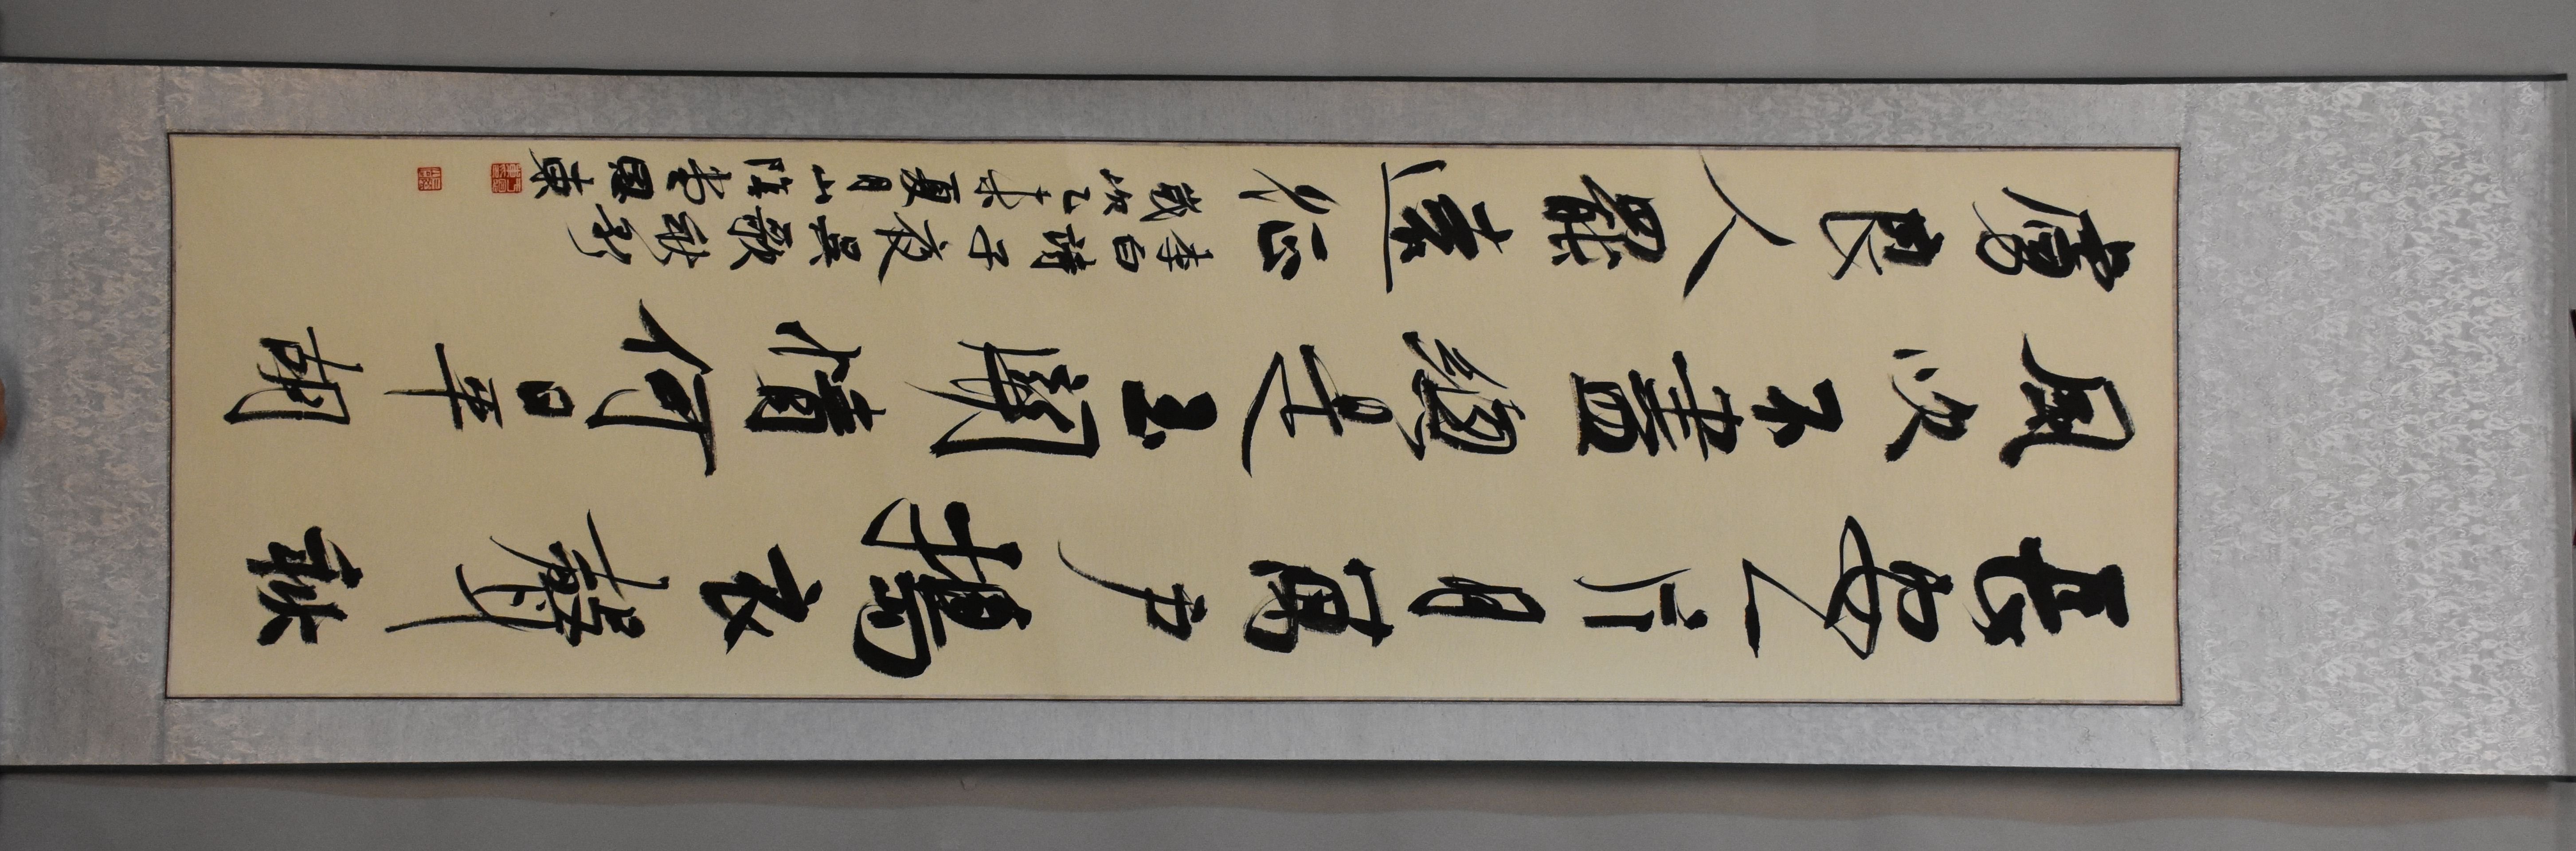 長安一片月萬戶擣衣聲秋
風吹不盡總是玉關情何日平胡
虜良人罷遠征
李白詩子夜吳歌秋
歲次乙未夏月山陰